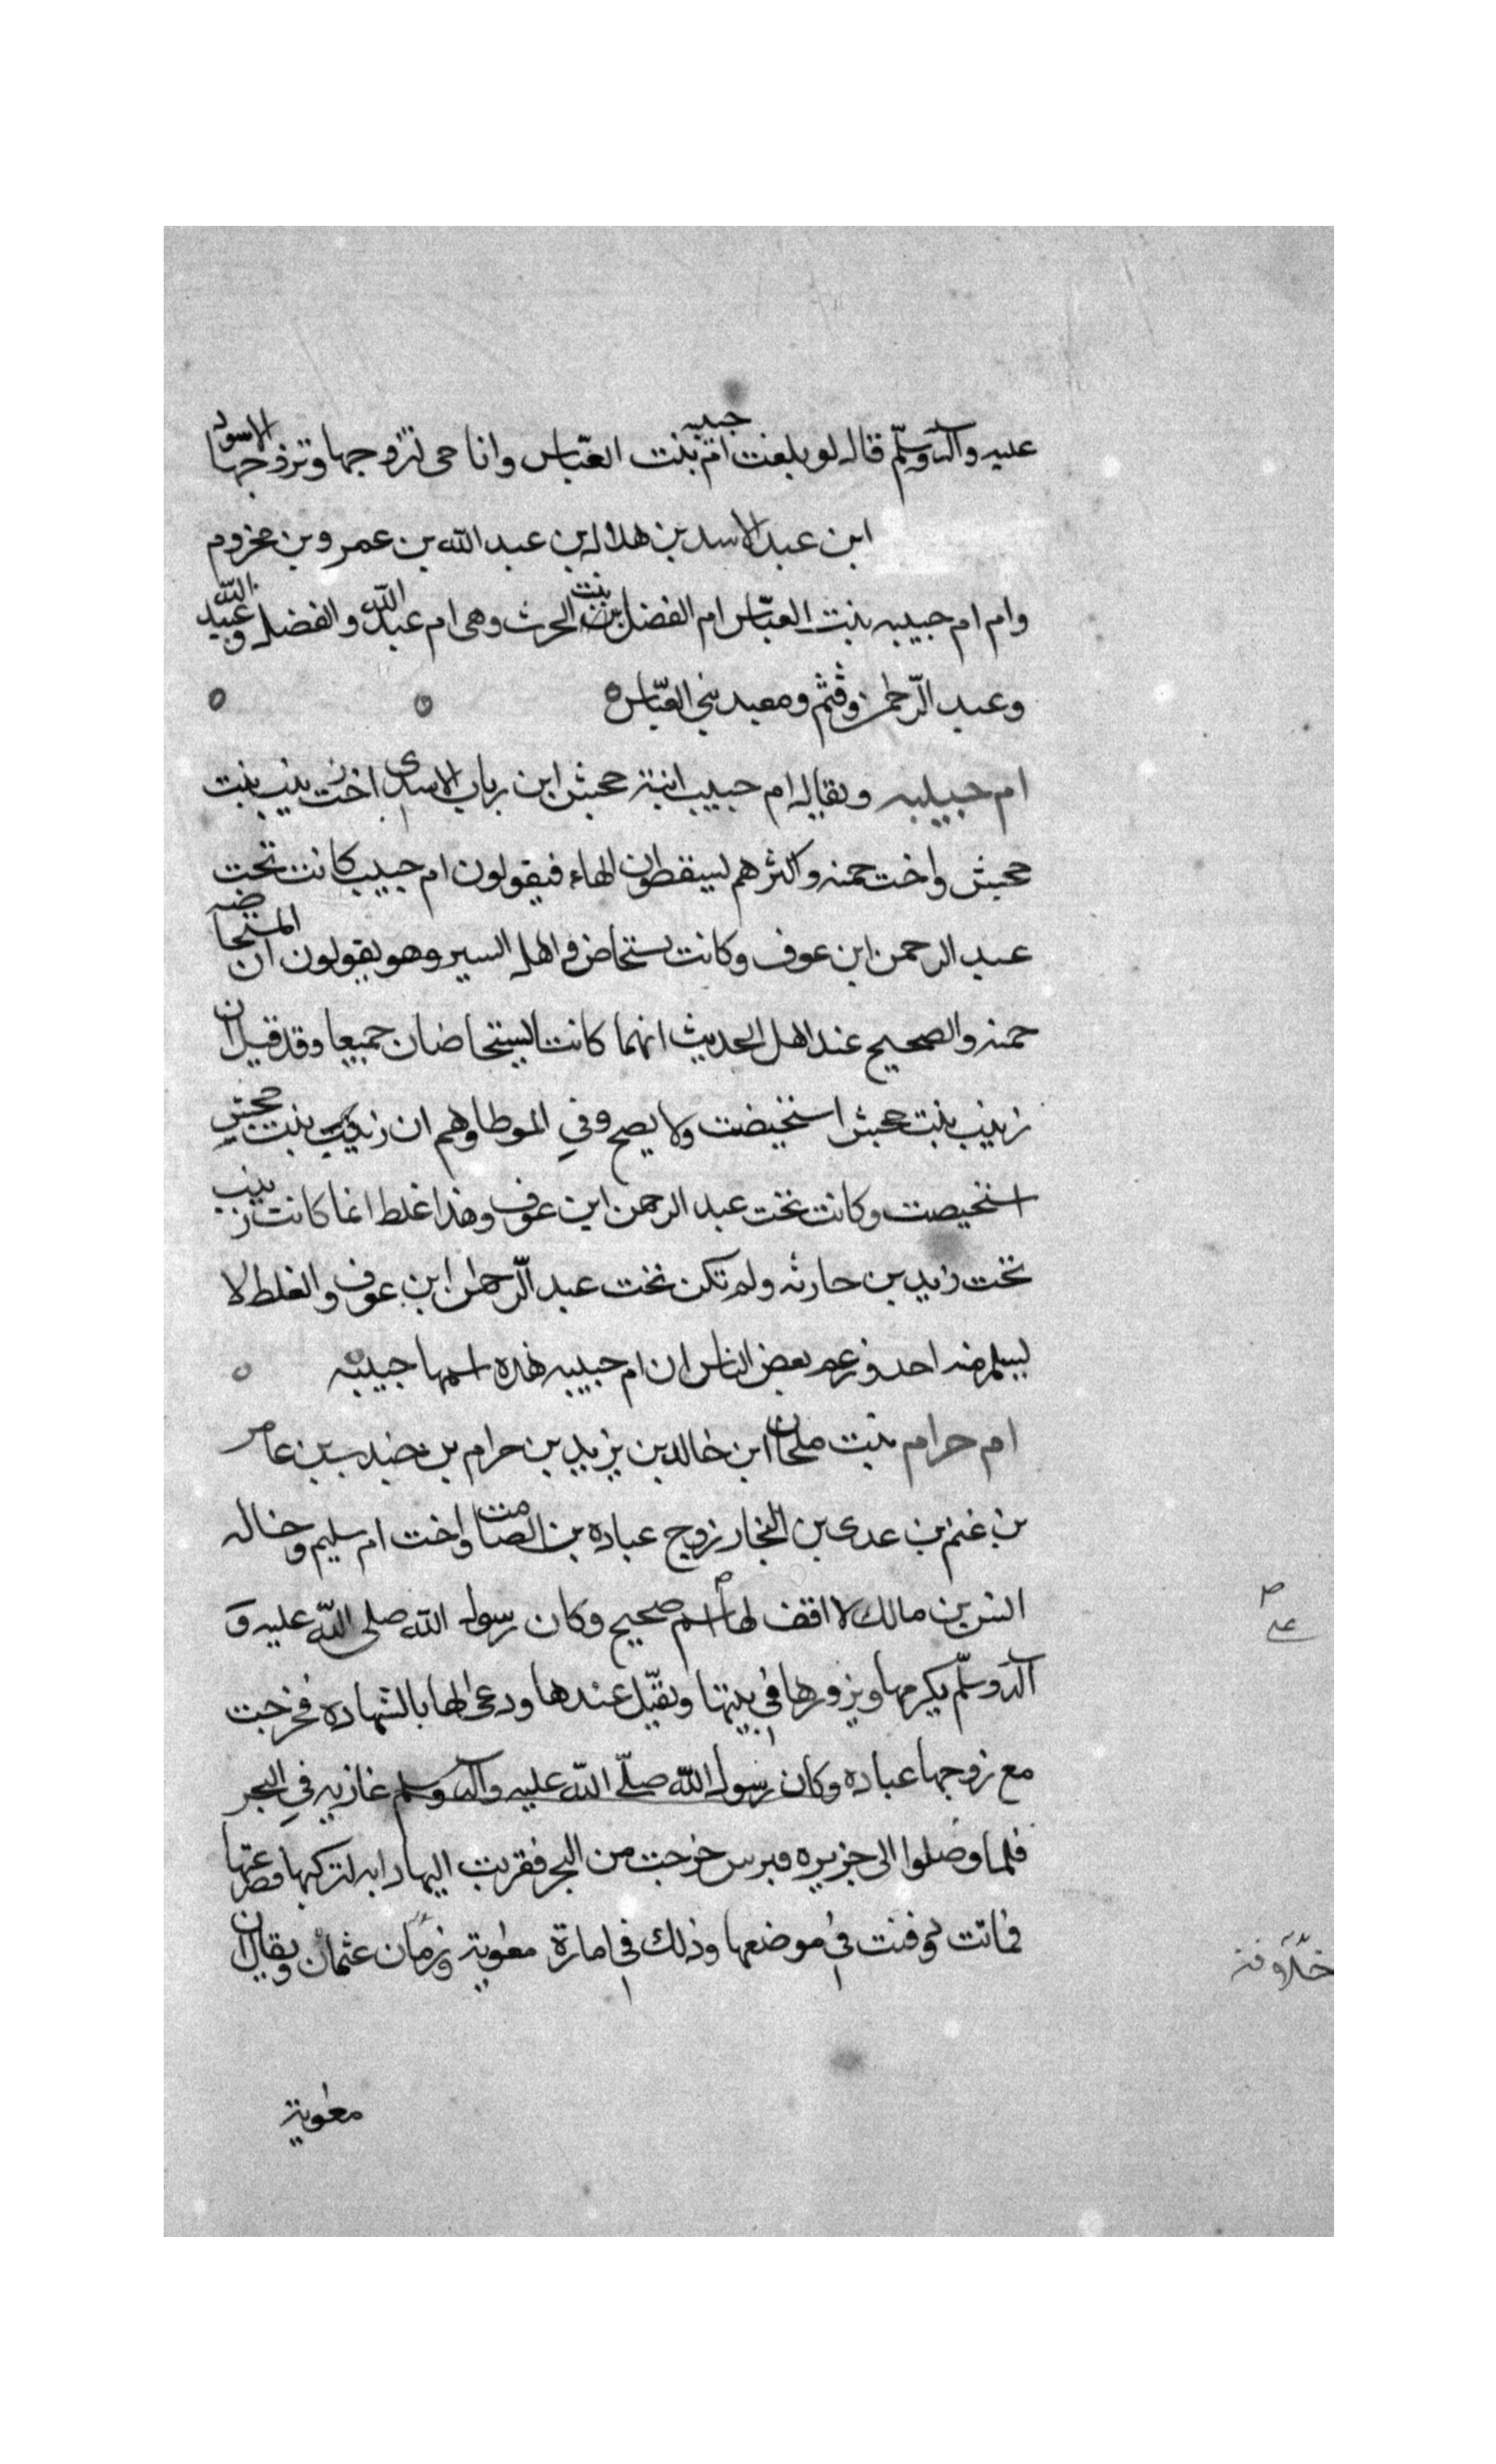 عليه وآله وسلّم قال لو بلغت ام حبيبه بنت العبّاس وانا حى لتزوجها وتزوجها الاسود
ابن عبد الاسد بن هلال بن عبد الله بن عمرو بن مخزوم
وام ام حبيبه بنت العبّاس ام الفضل بنت الحرث وهى ام عبد الله والفضل وعبيد الله
وعبد الرّحمن وقثم ومعبد بني العبّاس ه
ام حبيبه ويقال ام حبيب ابنة جحش ابن رباب الاسدى اخت زينب بنت
جحش واخت حمنه واكثرهم ليسقطون الهاء فيقولون ام حبيب كانت تحت
عبد الرحمن ابن عوف وكانت تستحاض واهل السير وهو يقولون ان المستحاضه
حمنه والصحيح عند اهل الحديث انهما كانتا ليستحاضان جميعا وقد قيل ان
زينب بنت جحش استحيضت ولا يصح وفي الموطا وهم ان زينب بنت جحش
استحيضت وكانت تحت عبد الرحمن ابن عوف وهذا غلط انما كانت زينب
تحت زيد بن حارثه ولم تكن تحت عبد الرّحمن ابن عوف والغلط لا
ليسلم منه احد وزعم بعض الناس ان ام حبيبه هذه اسمها حبيبه
ام حرام بنت ملحان ابن خالد بن يزيد بن حرام بن جندب بن عامر
بن غنم بن عدى بن النجار زوج عباده بن الصامت واخت ام سليم وخاله
انس بن مالك لا اقف لها اسم صحيح وكان رسول الله صلى الله عليه و
آله وسلّم يكرمها ويزورها في بيتها ويقيّل عندها ودعى لها بالشهاده فخرجت
مع زوجها عباده وكان رسول الله صلّى الله عليه وآله وسلم غازيه في البحر
فلما وصلوا الى جزيره قبرس خرجت من البحر فقربت اليها دابه لتركبها فصرعتها
فماتت ودفنت في موضعها وذلك في امارة معوية وزمان عثمان ويقال ان
على
خلافة
معوية